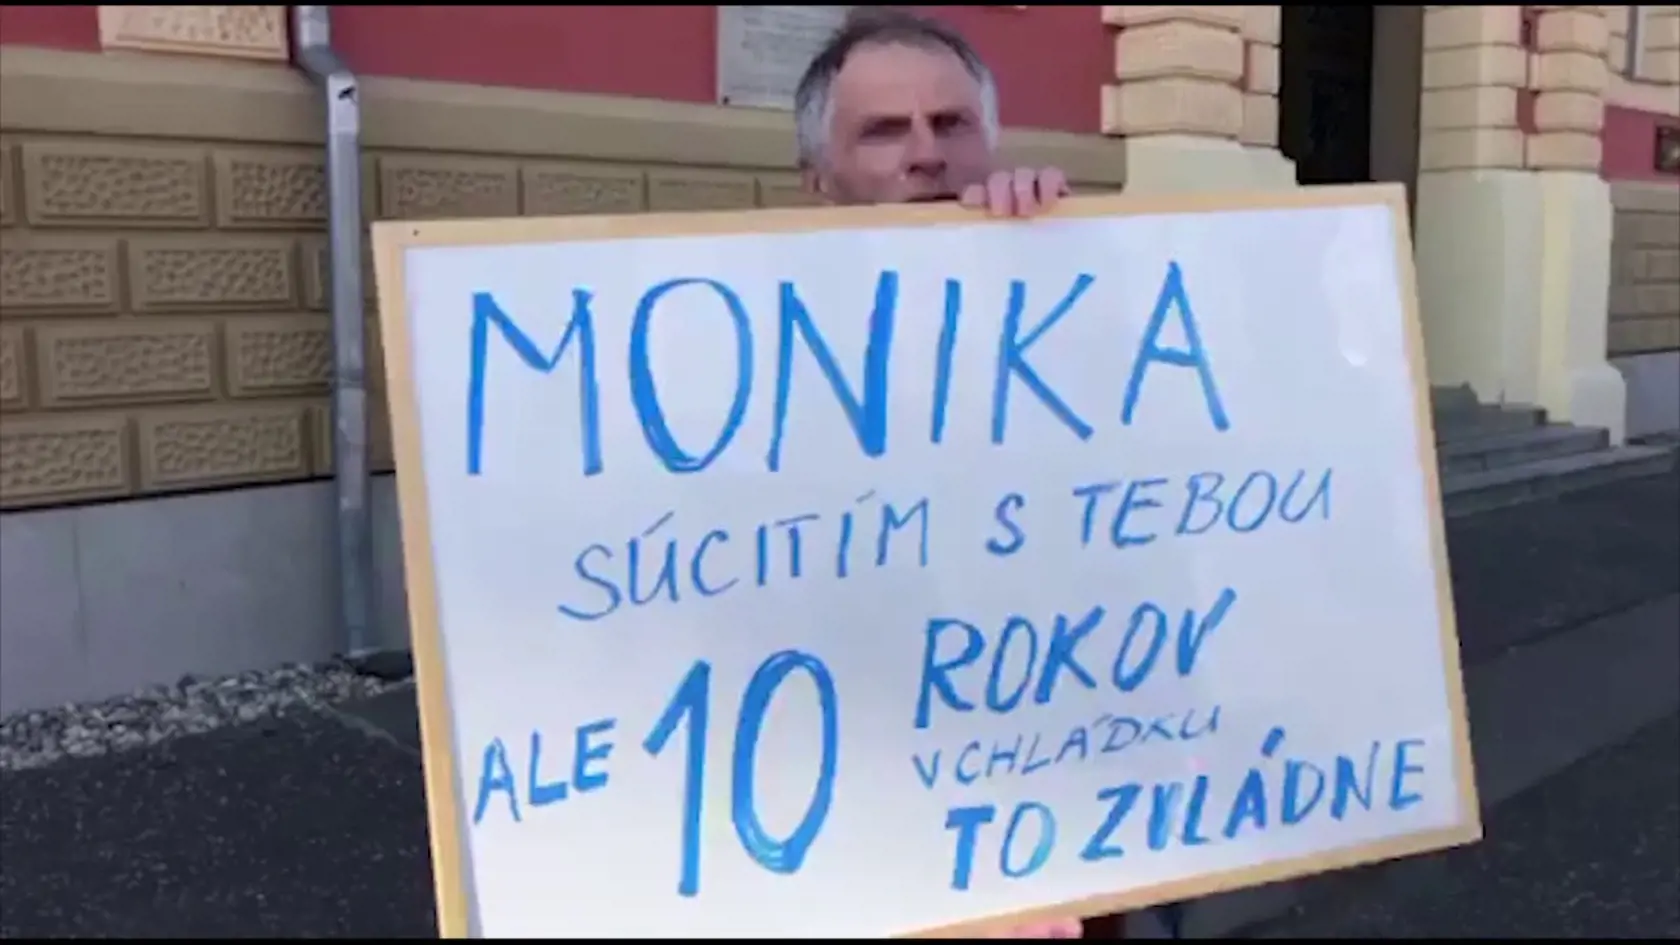 MONIKA
SÚCITÍM S TEBOU
ALE 10 ROKOV
V CHLÁDKU
TO ZVLÁDNE